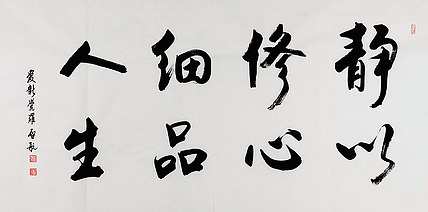 静以
修心
细品
人生
爱新觉罗